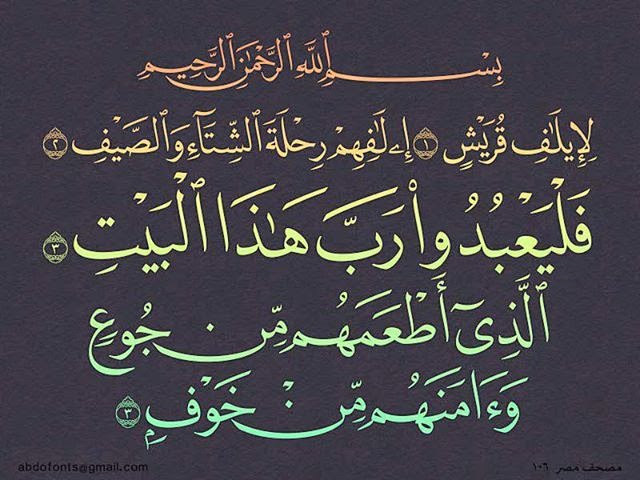 بِسْمِ ٱللَّهِ ٱلرَّحْمَٰنِ ٱلرَّحِيمِ
لِإِيلَٰفِ قُرَيْشٍ ١ إِۦلَٰفِهِمْ رِحْلَةَ ٱلشِّتَآءِ وَٱلصَّيْفِ ٢
فَلْيَعْبُدُوا۟ رَبَّ هَٰذَا ٱلْبَيْتِ ٣
ٱلَّذِىٓ أَطْعَمَهُم مِّن جُوعٍ
وَءَامَنَهُم مِّنْ خَوْفٍۭ ٣
abdofonts@gmail.com مصحف مصر ١٠٦